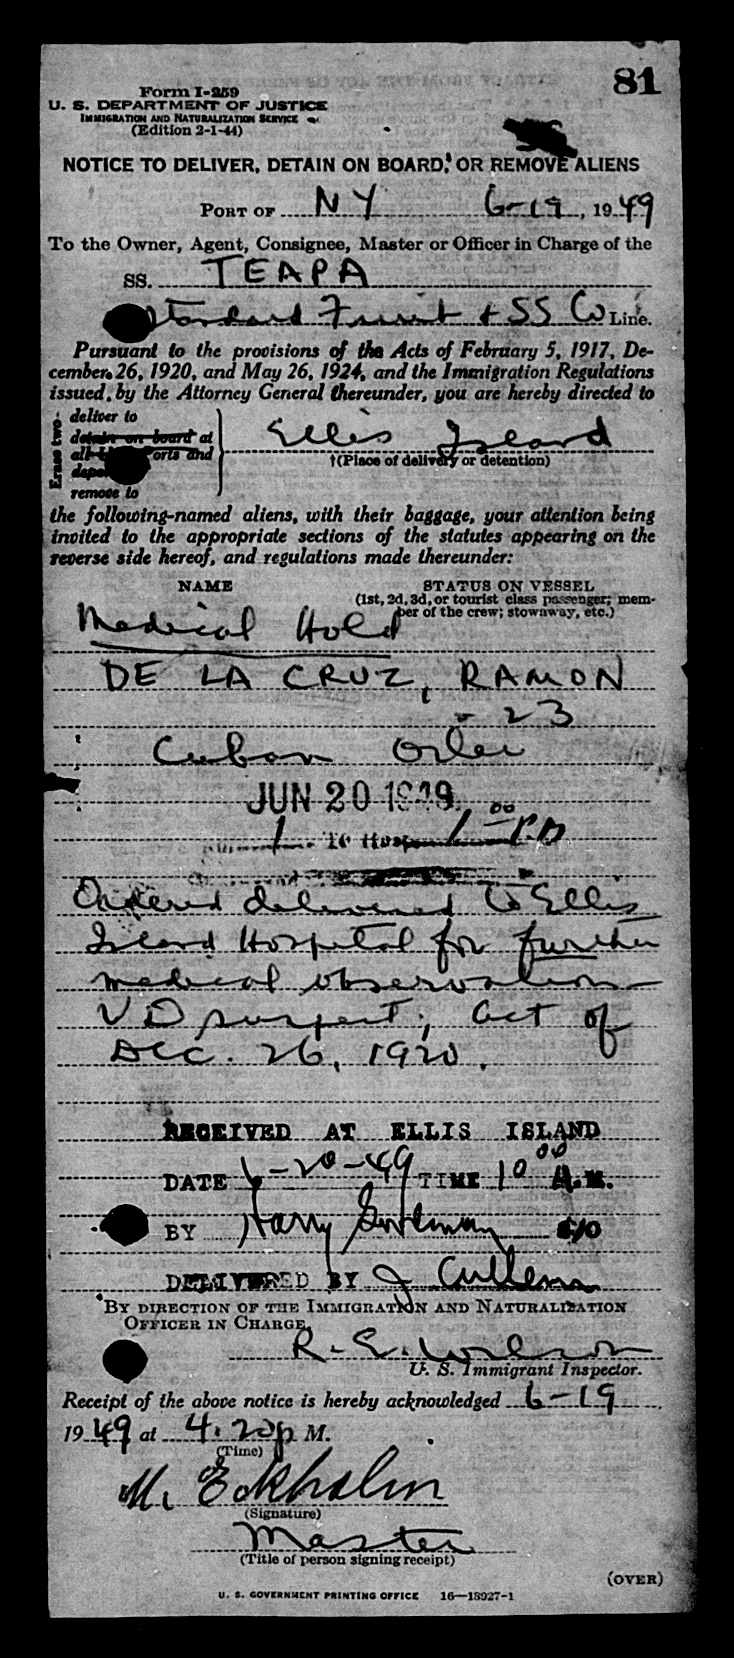 81
Form I-259
U. S. DEPARTMENT OF JUSTICE
IMMIGRATION AND NATURALIZATION SERVICE
(Edition 2-1-44)
NOTICE TO DELIVER, DETAIN ON BOARD, OR REMOVE ALIENS
PORT OF NY 6-19, 1949
To the Owner, Agent, Consignee, Master or Officer in Charge of the
SS. TEAPA
Standard Fruit + SS Co Line.
Pursuant to the provisions of the Acts of February 5, 1917, De-
cember 26, 1920, and May 26, 1924, and the Immigration Regulations
issued, by the Attorney General thereunder, you are hereby directed to
Erase two-
deliver to
detain on board at
all orts and
remove to
Ellis Island
†(Place of delivery or detention)
the following-named aliens, with their baggage, your attention being
invited to the appropriate sections of the statutes appearing on the
reverse side hereof, and regulations made thereunder:
NAME STATUS ON VESSEL
(1st, 2d, 3d, or tourist class passenger; mem-
ber of the crew; stowaway, etc.)
Medical Hold
DE LA CRUZ, RAMON
- 23
Cuban Oiler
JUN 20 1949
1 To Hosp 1 00 P.M
Ordered delivered to Ellis
Island Hospital for further
medical observation
VD suspect; Act of
Dec. 26, 1920.
RECEIVED AT ELLIS ISLAND
DATE 6-20-49 TIME 10 00 A.M.
BY Harry
DELIVERED BY J Cullen
BY DIRECTION OF THE IMMIGRATION AND NATURALIZATION
OFFICER IN CHARGE.
R. E. Wilson
U. S. Immigrant Inspector.
Receipt of the above notice is hereby acknowledged 6-19
1949 at 4:20 p M.
(Time)
M. Eckholm
(Signature)
Master
(Title of person signing receipt)
(OVER)
U. S. GOVERNMENT PRINTING OFFICE 16—18927-1